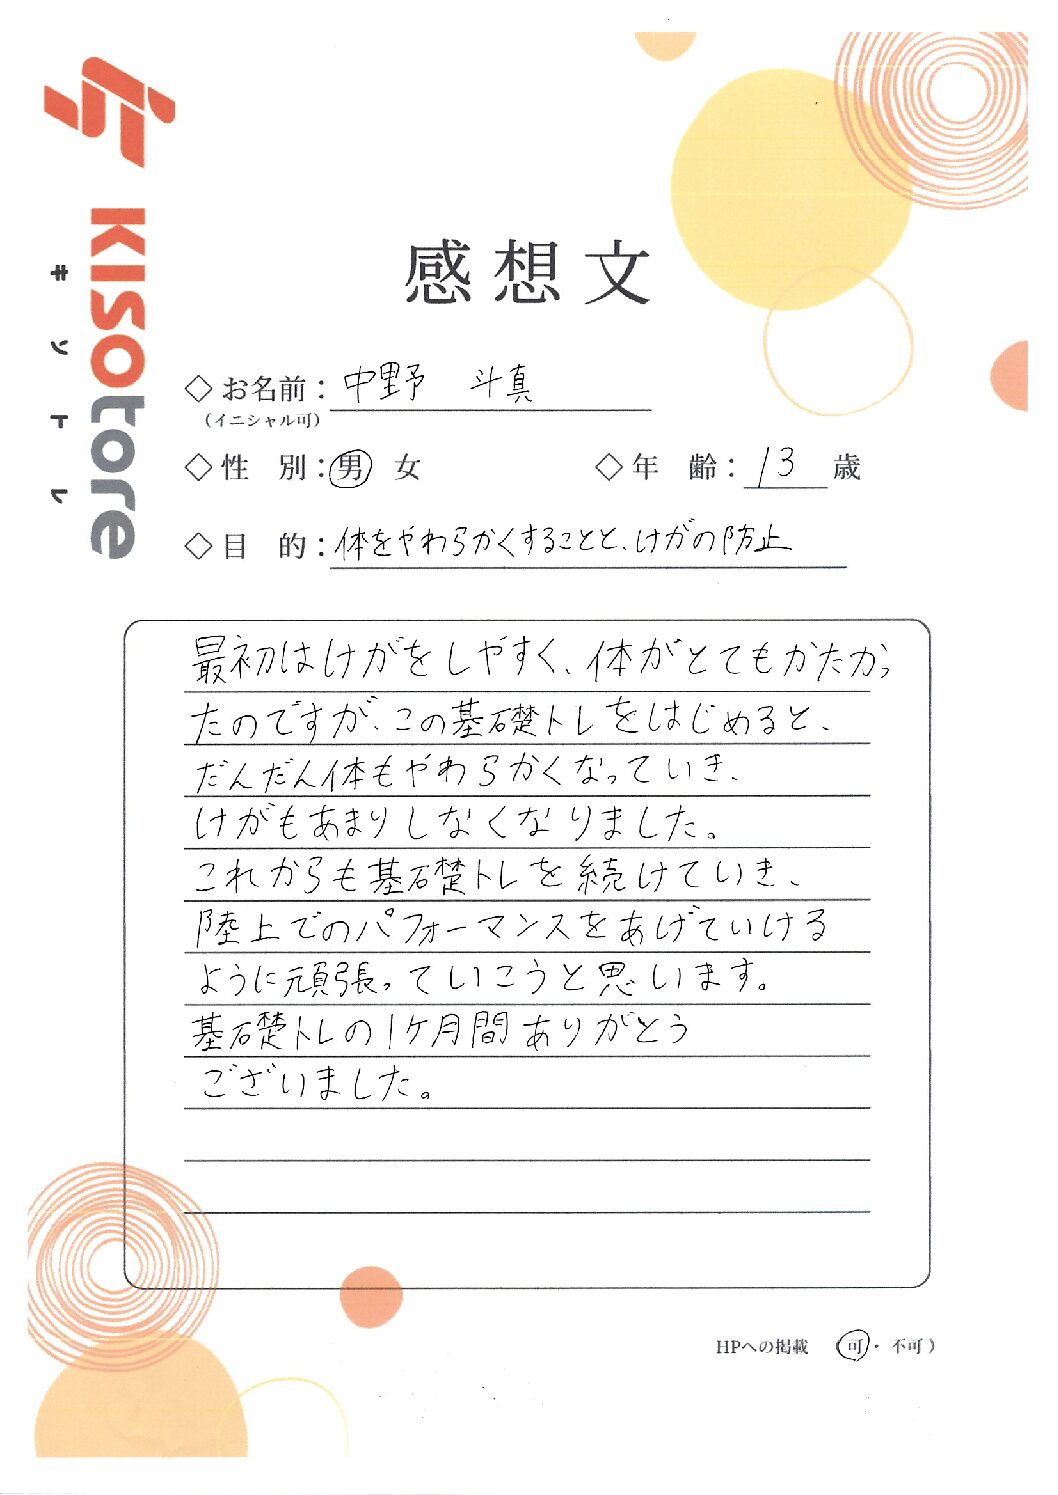 KISOtore
キソトレ
感想文
◇お名前：中野 斗真
（イニシャル可）
◇性 別：男 女 ◇年 齢：13歳
◇目 的：体をやわらかくすることと、けがの防止
最初はけがをしやすく、体がとてもかたかっ
たのですが、この基礎トレをはじめると、
だんだん体もやわらかくなっていき、
けがもあまりしなくなりました。
これからも基礎トレを続けていき、
陸上でのパフォーマンスをあげていける
ように頑張っていこうと思います。
基礎トレの1ケ月間ありがとう
ございました。
HPへの掲載 （可・不可）